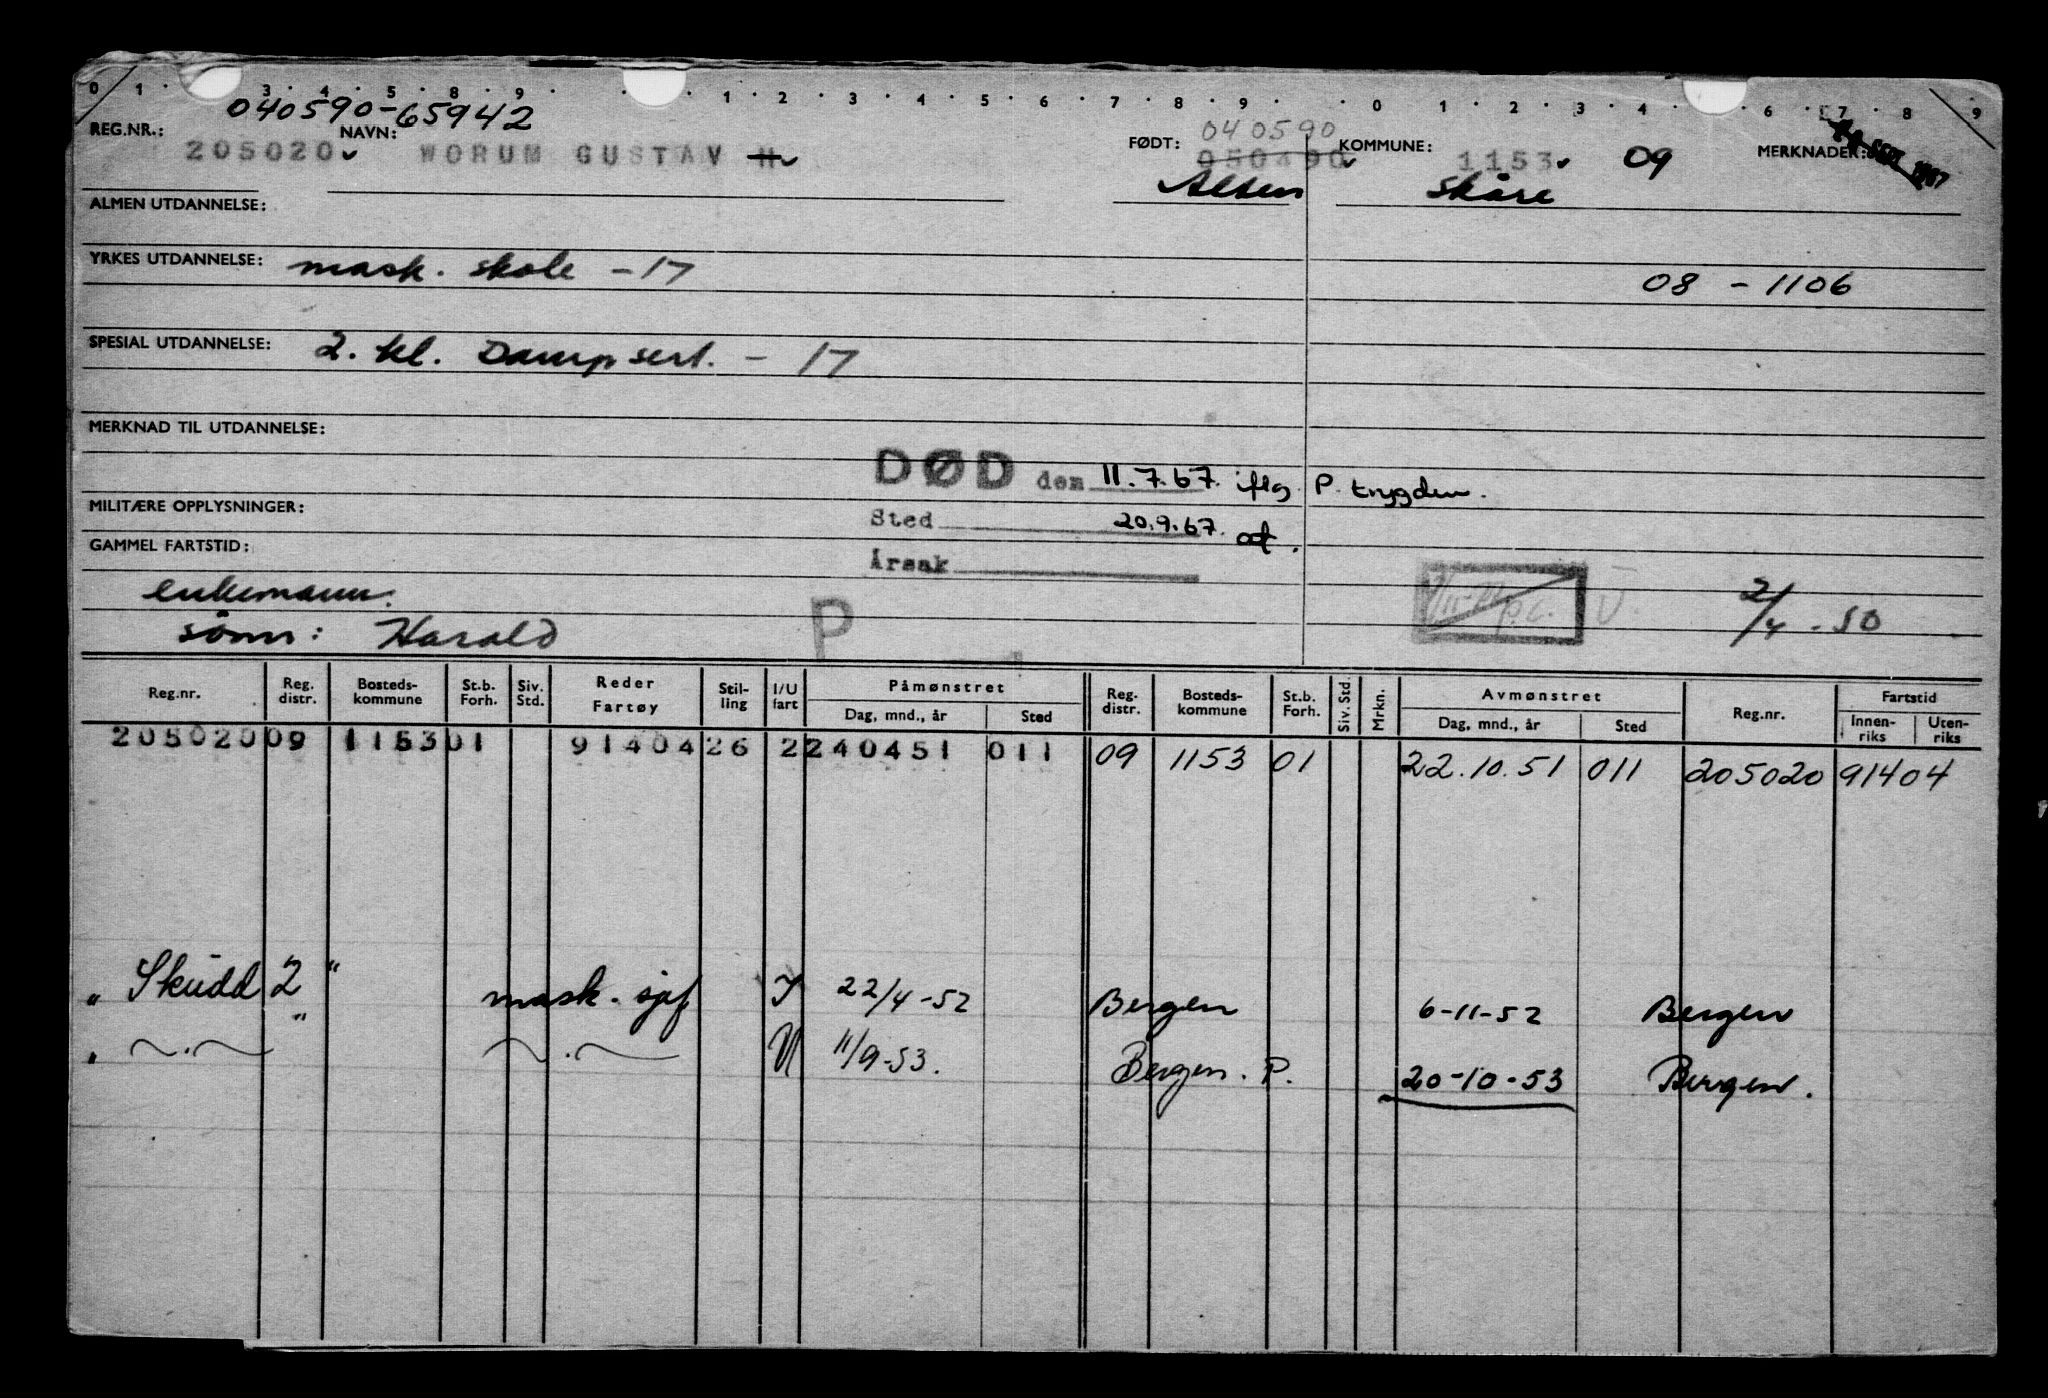 0 1 . 3 . 4 . 5 . 8 . 9 . . . 1 . 2 . 3 . 4 . 5 . 6 . 7 . 8 . 9 . . 0 1 . 2 . 3 . 4 . . 6 . 7 . 8 . 9
040590-65942
REG.NR.: 205020 NAVN: WORUM GUSTAV H FØDT: 040590 050490 KOMMUNE: 1153 09 MERKNADER:
Alten Skåre
ALMEN UTDANNELSE:
YRKES UTDANNELSE: mask. skole - 17 08 - 1106
SPESIAL UTDANNELSE: 2. kl. Damp sert. - 17
MERKNAD TIL UTDANNELSE:
DØD den 11.7.67. iflg. P. trygden.
MILITÆRE OPPLYSNINGER:
Sted 20.9.67.
GAMMEL FARTSTID:
Årsak
enkemann.
2/4 - 50
sønn: Harald P
Reg.nr. Reg. distr. Bosteds-kommune St.b. Forh. Siv. Std. Reder Fartøy Stil-ling I/U fart Påmønstret Dag, mnd., år Sted Reg. distr. Bosteds-kommune St.b. Forh. Siv. Std. Mrkn. Avmønstret Dag, mnd., år Sted Reg.nr. Fartstid Innen-riks Uten-riks
205020 09 1153 01 91404 26 2 240451 011 09 1153 01 22.10.51 011 205020 91404
" Skudd 2 " mask. sjef I 22/4-52 Bergen 6-11-52 Bergen
" ~.~ " ~.~ U 11/9-53. Bergen. P. 20-10-53 Bergen.